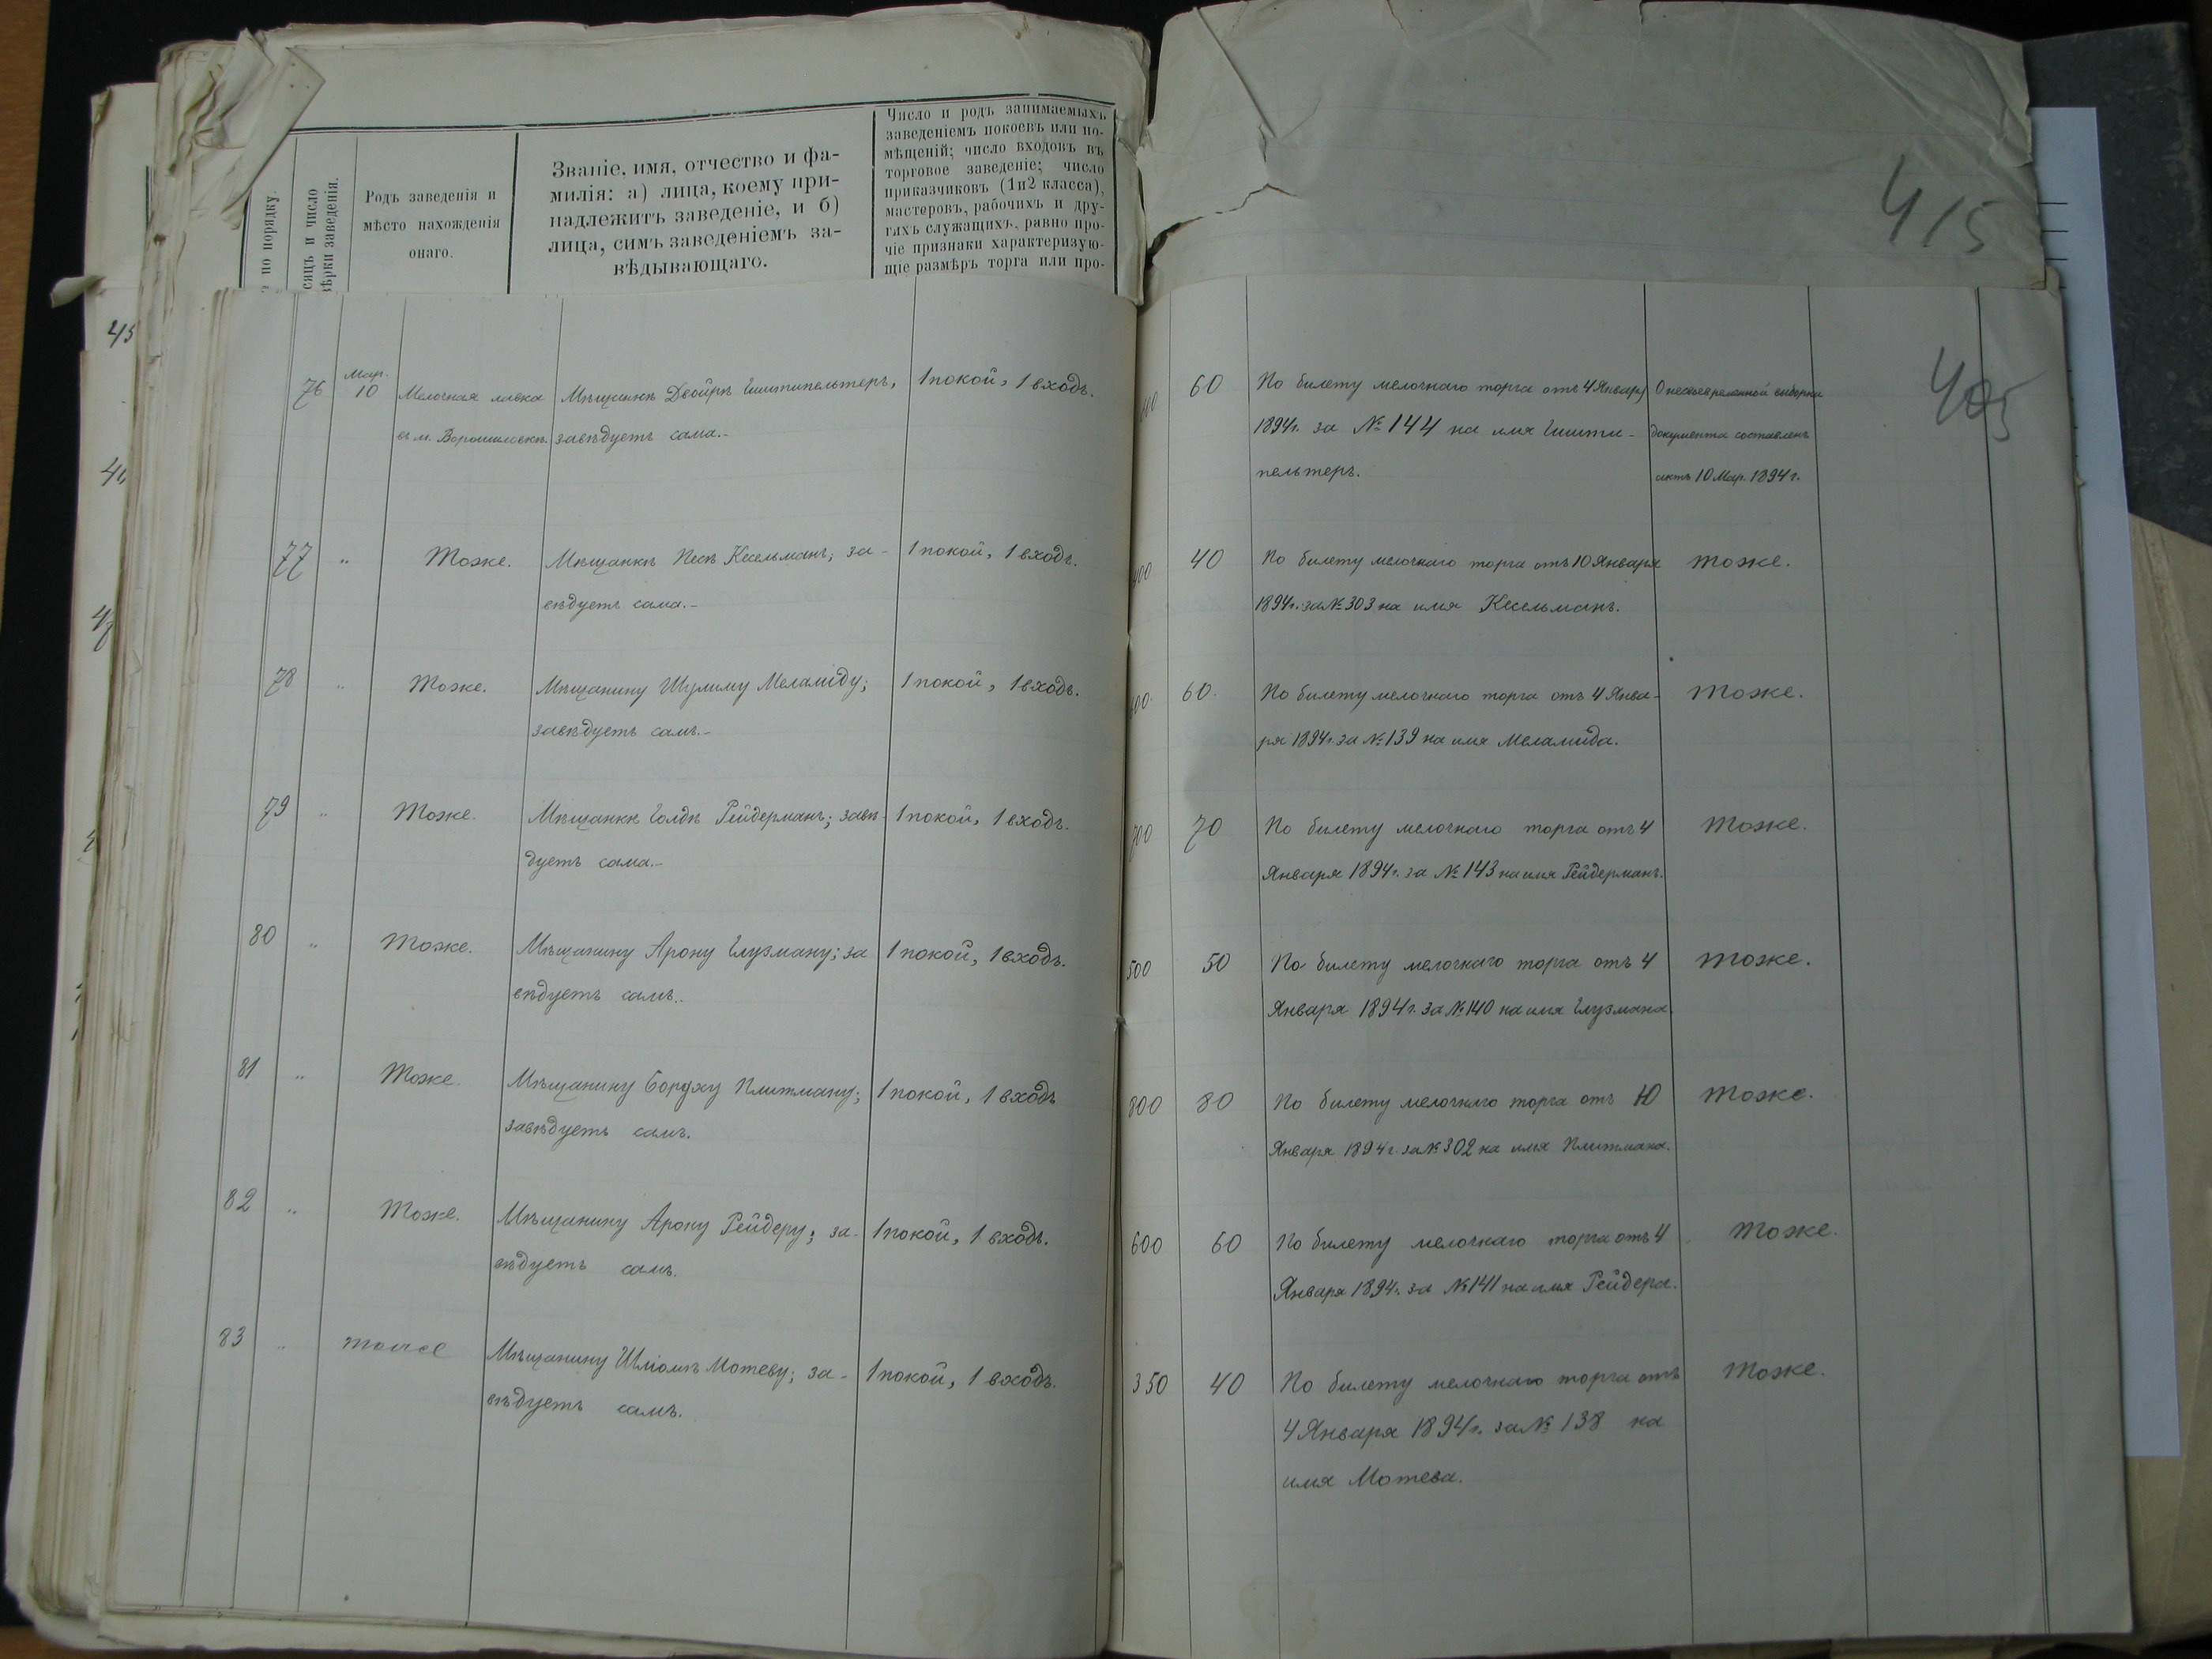 № по порядку.
сяцъ и число
вѣрки заведенія.
Родъ заведенія и
мѣсто нахожденія
онаго.
Званіе, имя, отчество и фа-
милія: а) лица, коему при-
надлежитъ заведеніе, и б)
лица, симъ заведеніемъ за-
вѣдывающаго.
Число и родъ занимаемыхъ
заведеніемъ покоевъ или по-
мѣщеній; число входовъ въ
торговое заведеніе; число
приказчиковъ (1и2 класса),
мастеровъ, рабочихъ и дру-
гихъ служащихъ, равно про-
чіе признаки характеризую-
щіе размѣръ торга или про-
415
405
76 Мар. 10 Мелочная лавка Мѣщанкѣ Двойрѣ 1 покой, 1 входъ.
въ м. Ворошиловкѣ завѣдуетъ сама.-
60 По билету мелочнаго торга отъ 4 Января О несвоевременной выборки
1894г. за № 144 на имя документа составленъ
пельтеръ. актъ 10 Мар. 1894 г.
77 " Тоже. Мѣщанкѣ Песѣ Кесельманъ; за- 1 покой, 1 входъ.
вѣдуетъ сама.-
400 40 По билету мелочнаго торга отъ 10 Января Тоже.
1894г. за № 303 на имя Кесельманъ.
78 " Тоже. Мѣщанину Шулиму Меламиду; 1 покой, 1 входъ.
завѣдуетъ самъ.-
600. 60. По билету мелочнаго торга отъ 4 Янва- Тоже.
ря 1894г. за № 139 на имя Меламида.
79 " Тоже. Мѣщанкѣ Голдѣ Рейдерманъ; завѣ- 1 покой, 1 входъ.
дуетъ сама.-
700 70 По билету мелочнаго торга отъ 4 Тоже.
Января 1894г. за № 143 на имя Рейдерманъ.
80 " Тоже. Мѣщанину Арону Глузману; за 1 покой, 1 входъ.
вѣдуетъ самъ.
500 50 По билету мелочнаго торга отъ 4 Тоже.
Января 1894г. за № 140 на имя Глузмана.
81 " Тоже. Мѣщанину Боруху Плитману; 1 покой, 1 входъ
завѣдуетъ самъ.
800 80 По билету мелочнаго торга отъ 10 Тоже.
Января 1894г. за № 302 на имя Плитмана.
82 " Тоже. Мѣщанину Арону Рейдеру; за- 1 покой, 1 входъ.
вѣдуетъ самъ.
600 60 По билету мелочнаго торга отъ 4 Тоже.
Января 1894г. за № 141 на имя Рейдера.
83 " Тоже Мѣщанину Шліомѣ Мотеву; за- 1 покой, 1 входъ.
вѣдуетъ самъ.
350 40 По билету мелочнаго торга отъ Тоже.
4 Января 1894г. за № 138 на
имя Мотева.